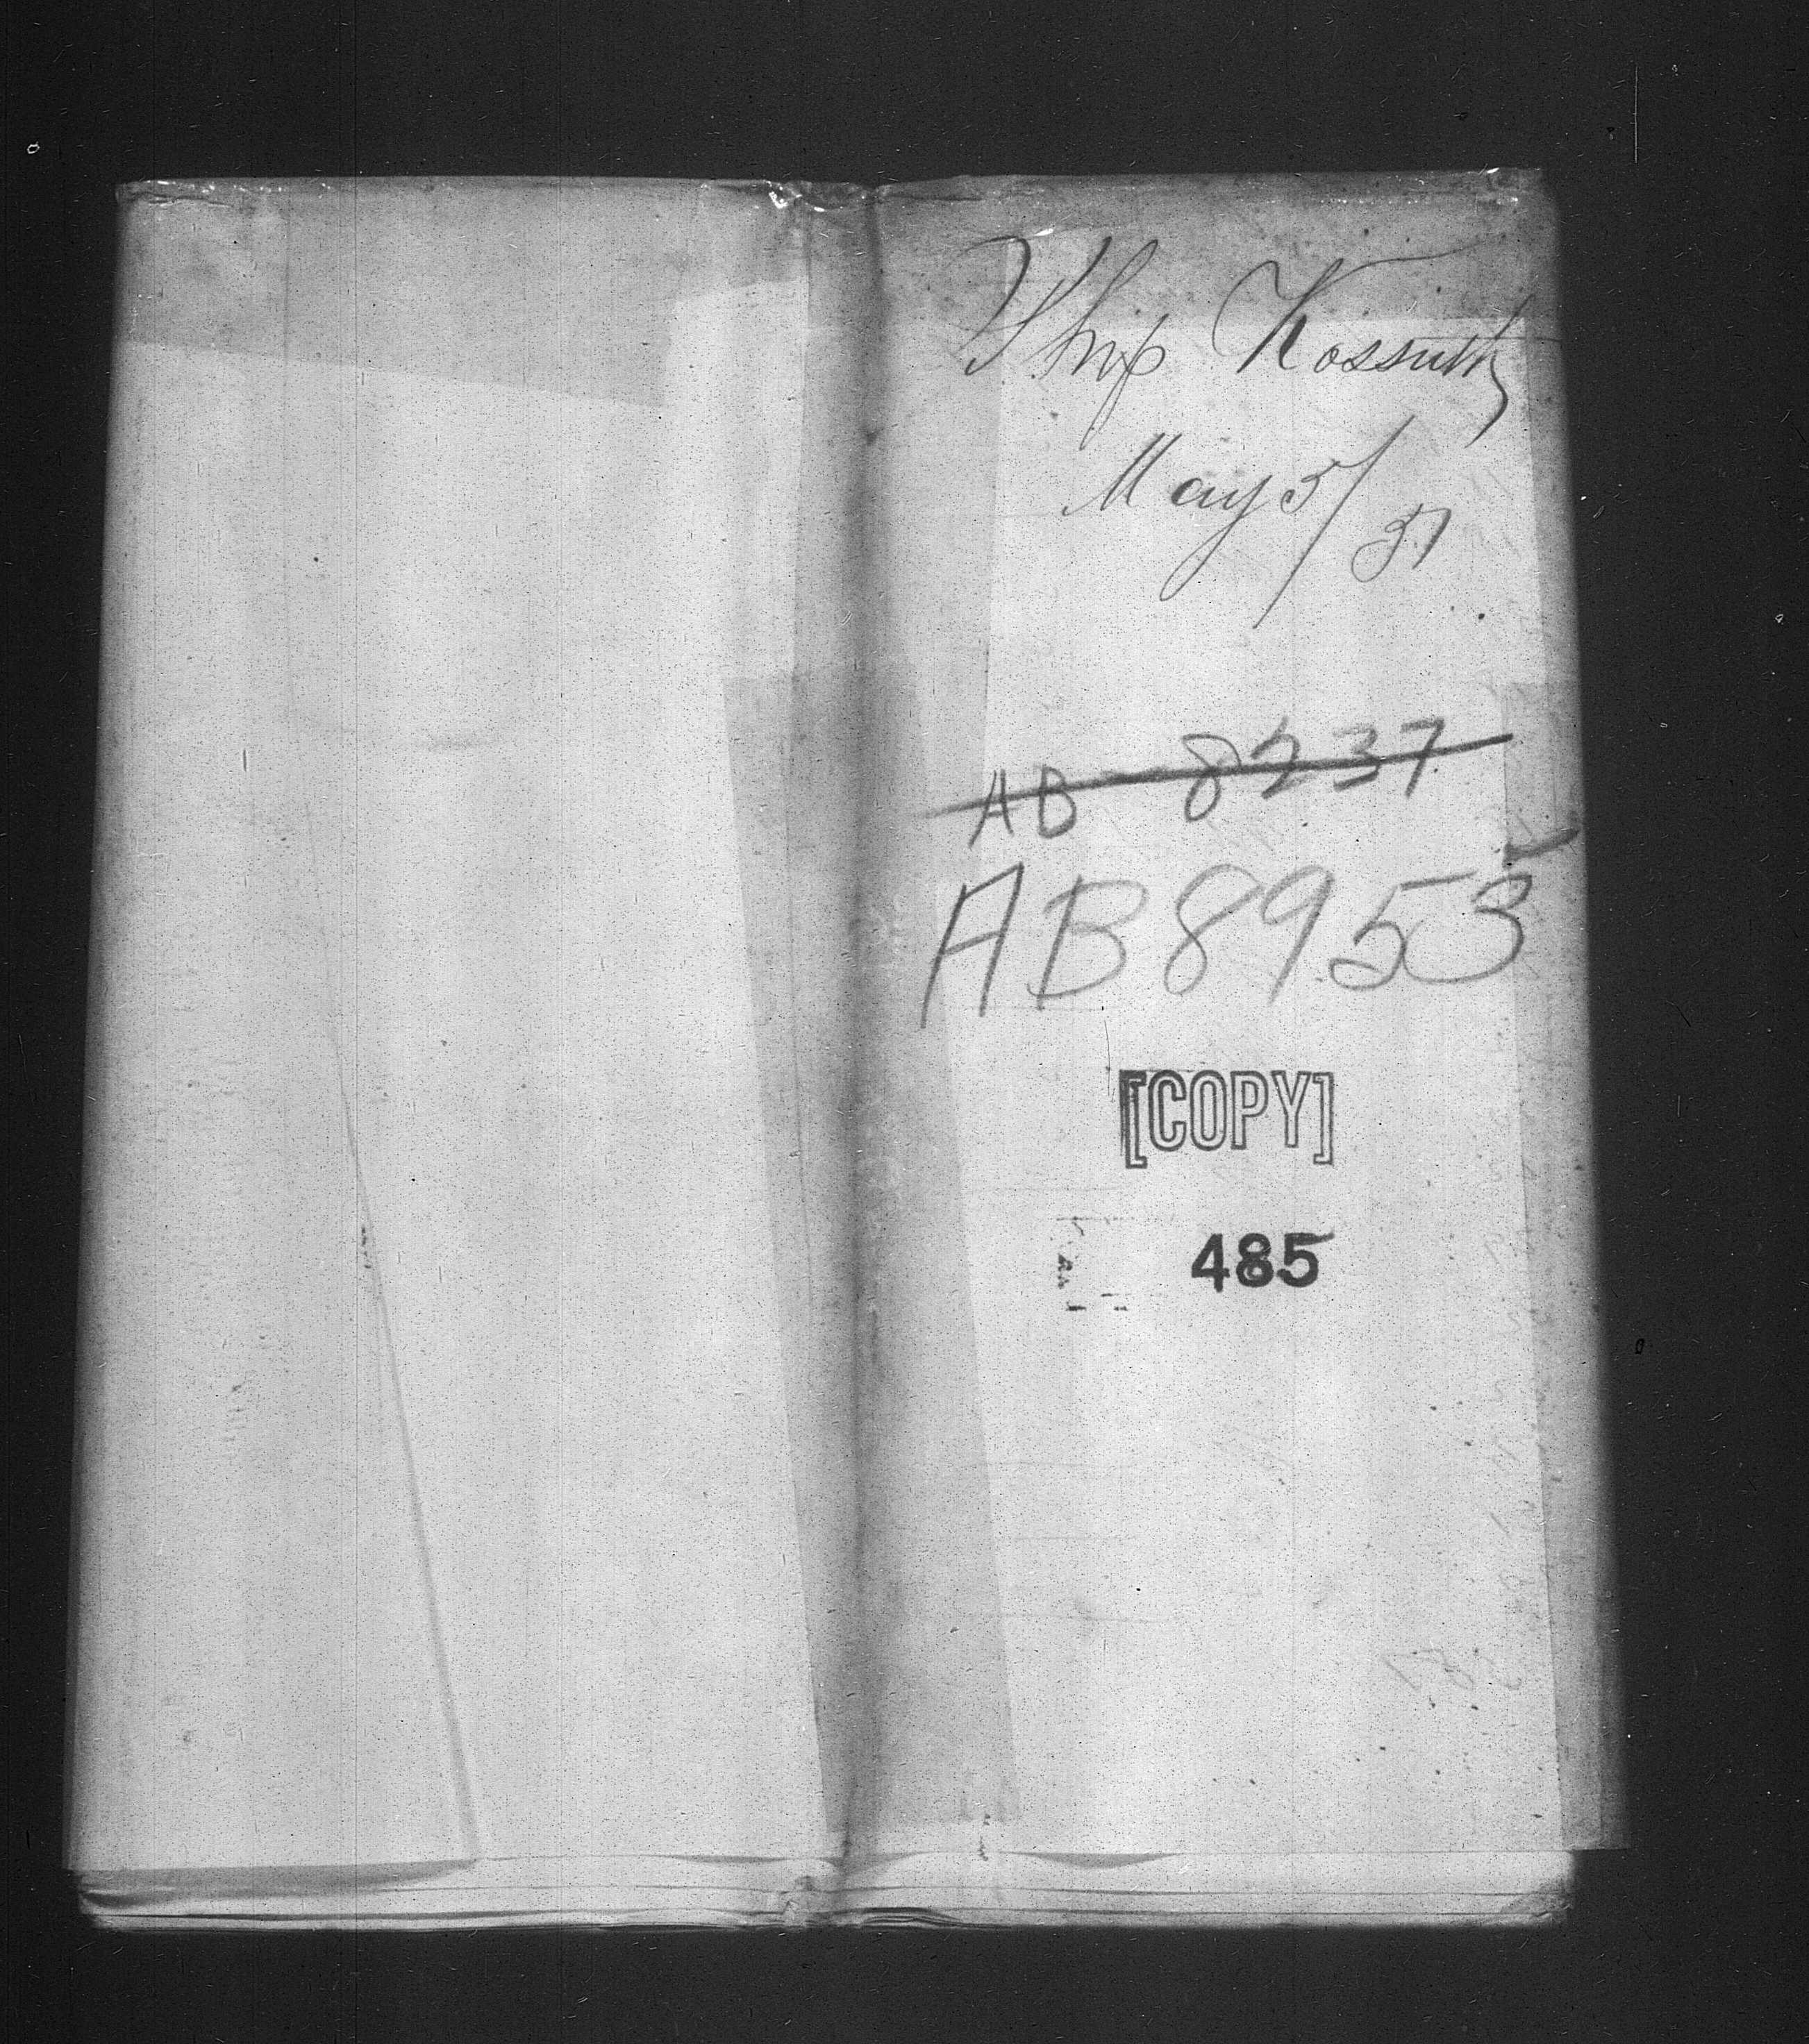 Ship Kossuth
May 5/57
AB 8237
AB 8953
[COPY]
485